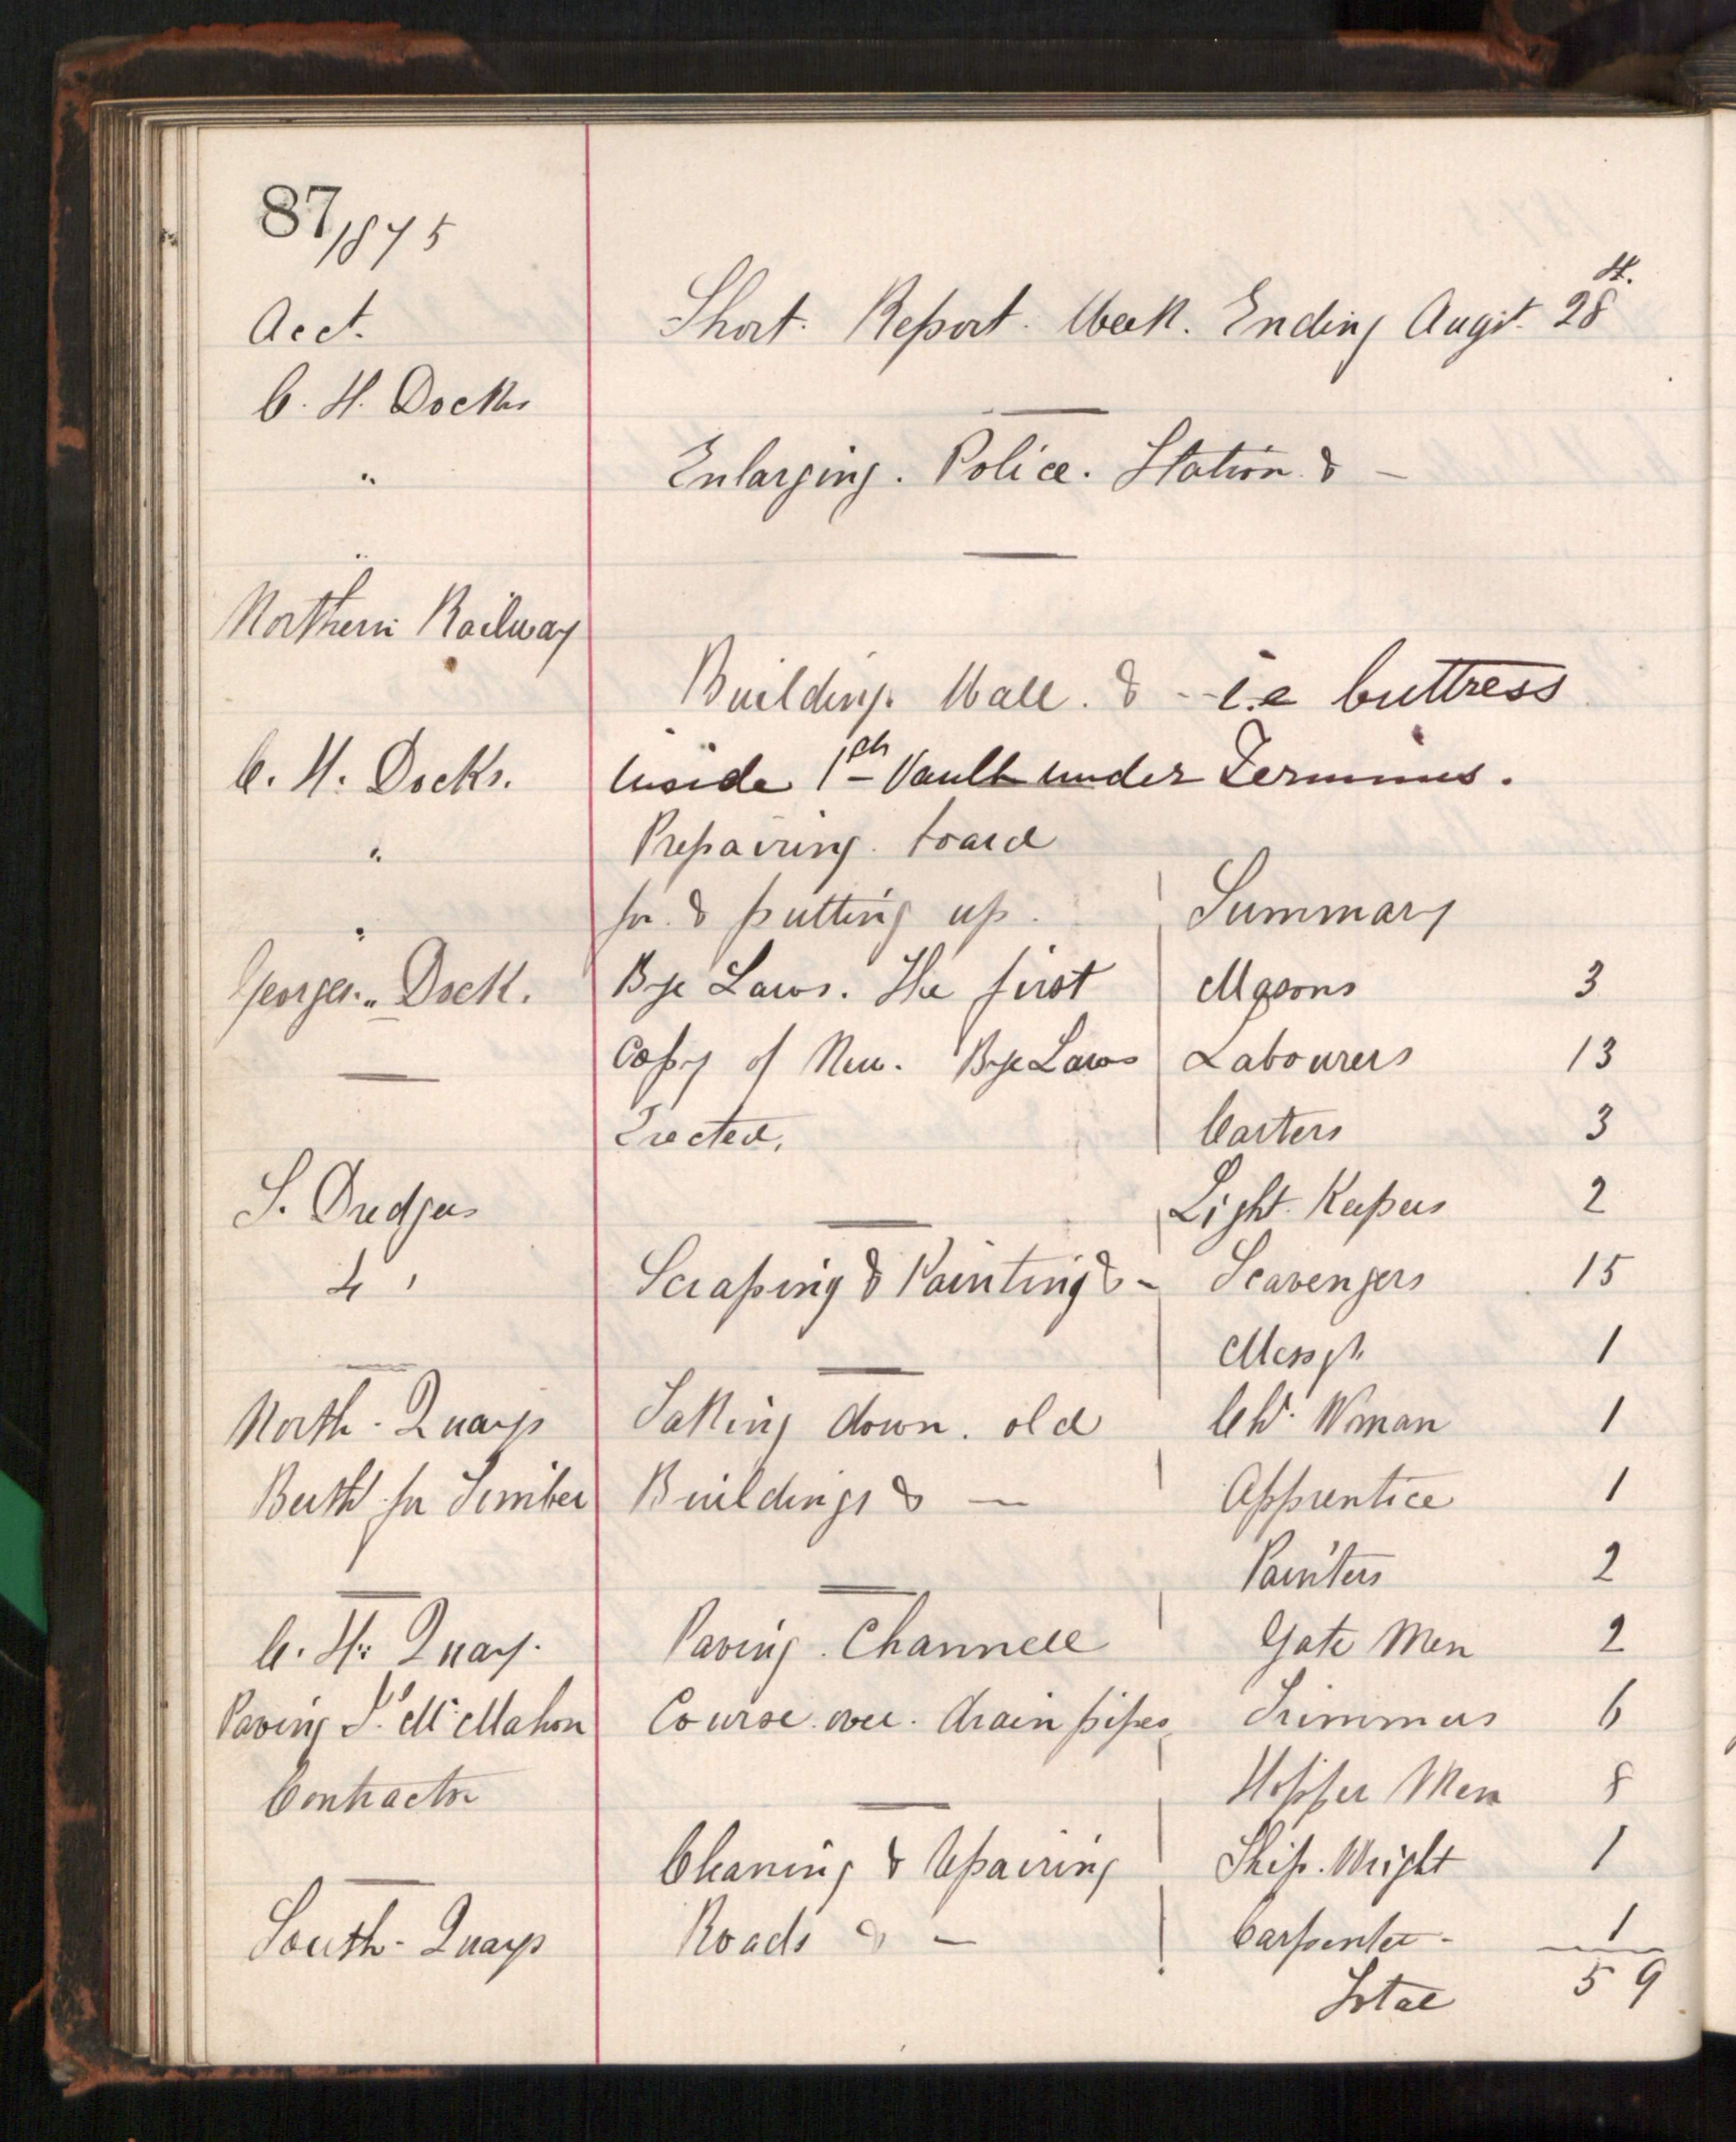 87/1875
Acct.
Short. Report. Week. Ending Augst. 28th.
C. H. Docks
"
Enlarging. Police. Station. & —
"
Northern Railway
Building. Wall. & -- i.e buttress
C. H. Docks.
inside 1st Vault under Terminus.
"
Prepairing. board
for. & putting up.
"
Georges.. Dock.
Bye Laws. The first
Copy of New. Bye Laws
Erected.
S. Dredger
4 "
Scraping & Painting & -
North - Quays
Taking down. old
Berth for Timber
Buildings & —
C. H. Quay.
Paving. Channell
Paving Js. McMahon
Course. over. drain pipes
Contractor
Cleaning & Repairing
South - Quays
Roads & —
Summary
Masons 3
Labourers 13
Carters 3
Light. Keepers 2
Scavengers 15
Messgr. 1
Chr. Woman 1
Apprentice 1
Painters 2
Gate Men 2
Trimmers 6
Hopper Men 8
Ship. Wright 1
Carpenter - 1
Total 59